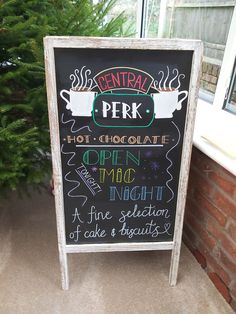 CENTRAL
PERK
HOT · CHOCOLATE
OPEN
MIC
TONIGHT!
NIGHT
A fine selection
of cake & biscuits